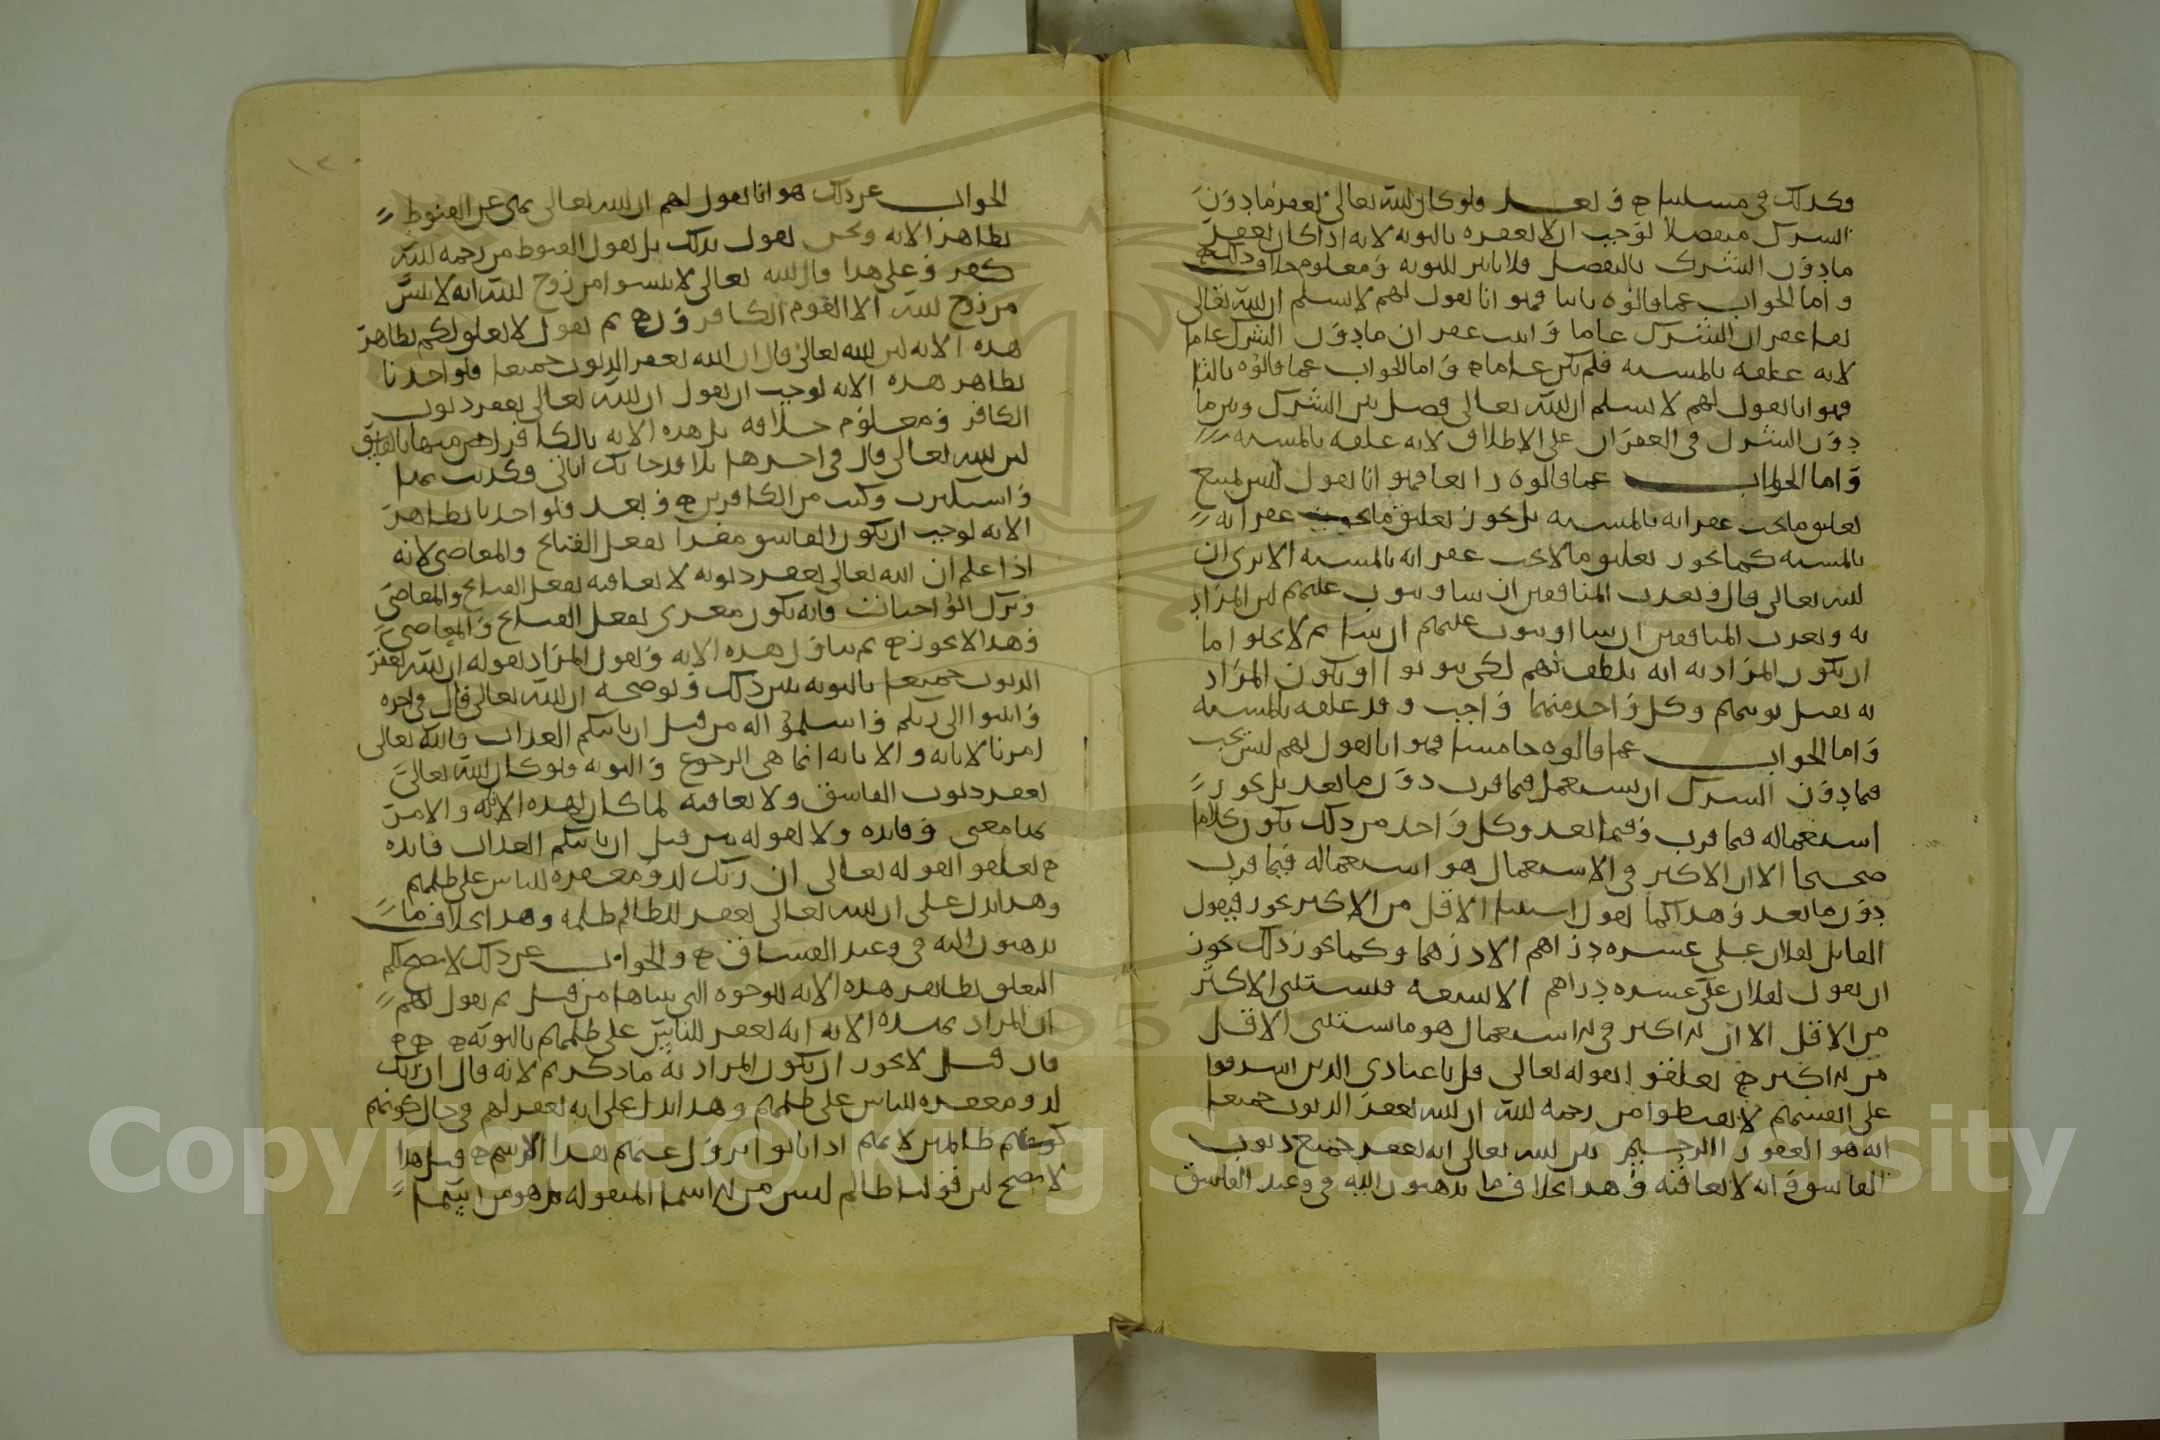 وكذلك في مسلتنا ه وبعـــد فلو كان الله تعالى يغفر ما دون
الشرك متفضلا لوجب ان لا يغفره بالتوبه لانه اذا كان يغفر
ما دون الشرك بالتفضل فلا تاثير للتوبه ومعلوم خلاف ذلك ه
واما الجواب عما قالوه ثانيا فهو انا نقول لهم لا نسلم ان الله تعالى
نفا غفران الشرك عاما واثبت غفران ما دون الشرك عاما
لانه علقه بالمشيه فلم يكن عاما ه واما الجواب عما قالوه ثالثا
فهو انا نقول لهم لا نسلم ان الله تعالى فصل بين الشرك وبين ما
دون الشرك في الغفران على الاطلاق لانه علقه بالمشيه
واما الجواب عما قالوه رابعا فهو انا نقول ليس يمتنع
تعليق ما يجب غفرانه بالمشيه بل يجوز تعليق ما يجب غفرانه
بالمشيه كما يجوز تعليق ما لا يجب غفرانه بالمشيه الا ترى ان
الله تعالى قال ويعذب المنافقين ان شا او يتوب عليهم لان المراد
به ويعذب المنافقين ان شا او يتوب عليهم ان شا ثم لا يخلو اما
ان يكون المراد به انه يلطف لهم لكي يتوبوا او يكون المراد
به يقبل توبتهم وكل واحد منهما واجب وقد علقه بالمشيه
واما الجواب عما قالوه خامسا فهو انا نقول لهم ليس يجب
فما دون الشرك ان يستعمل فيما قرب دون ما بعد بل يجوز
استعماله فيما قرب وفيما بعد وكل واحد من ذلك يكون كلاما
صحيحا الا ان الاكثر في الاستعمال هو استعماله فيما قرب
دون ما بعد وهذا كما نقول استثنا الاقل من الاكثر يجوز فيقول
القايل لفلان علي عشره دراهم الا درهما وكما يجوز ذلك يجوز
ان يقول لفلان علي عشره دراهم الا تسعه فيستثنى الاكثر
من الاقل الا ان الاكثر في الاستعمال هو ما استثنى الاقل
من الاكثر ه تعلقوا بقوله تعالى قل يا عبادي الذين اسرفوا
على انفسهم لا تقنطوا من رحمه الله ان الله يغفر الذنوب جميعا
انه هو الغفور الرحيم بين الله تعالى انه يغفر جميع ذنوب
الفاسق وانه لا يعاقبه وهذا بخلاف ما تذهبون اليه في وعيد الفاسق
الجواب عن ذلك هو انا نقول لهم ان الله تعالى نهى عن القنوط
بظاهر الايه ونحن نقول بذلك بل نقول القنوط من رحمه الله
كفر وعلى هذا قال الله تعالى لا تيئسوا من روح الله انه لا يئس
من روح الله الا القوم الكافرون ه ثم نقول لا تعلق لكم بظاهر
هذه الايه لان الله تعالى قال ان الله يغفر الذنوب جميعا فلو اخذنا
بظاهر هذه الايه لوجب ان نقول ان الله تعالى يغفر ذنوب
الكافر ومعلوم خلافه بل هذه الايه بالكافر اخص منها بالفاسق
لان الله تعالى قال في اخرها بلا قد جاتك اياتي فكذبت بها
واستكبرت وكنت من الكافرين ه وبعد فلو اخذنا بظاهر
الايه لوجب ان يكون الفاسق مغرا بفعل القبايح والمعاصي لانه
اذا علم ان الله تعالى يغفر ذنوبه لا يعاقبه بفعل القبايح والمعاصي
وترك الواجبات فانه يكون مغرى بفعل القبايح والمعاصي
وهذا لا يجوز ه ثم نتاول هذه الايه ونقول المراد بقوله ان الله يغفر
الذنوب جميعا بالتوبه يبين ذلك ويوضحه ان الله تعالى قال في اخره
وانيبوا الى ربكم واسلموا له من قبل ان ياتيكم العذاب فالله تعالى
امرنا بالانابه والانابه انما هي الرجوع والتوبه ولو كان الله تعالى
يغفر ذنوب الفاسق ولا يعاقبه لما كان لهذه الانابه والامر
بها معنى وفايده ولا لقوله من قبل ان ياتيكم العذاب فايده
ه تعلقوا بقوله تعالى ان ربك لذو مغفره للناس على ظلمهم
وهذا يدل على ان الله تعالى يغفر للظالم ظلمه وهذا بخلاف ما
تذهبون اليه في وعيد الفساق ه والجواب عن ذلك لا يصح لكم
التعلق بظاهر هذه الايه للوجوه التي بيناها من قبل ثم نقول لهم
ان المراد بهذه الايه انه يغفر للناس على ظلمهم بالتوبه ه ه ه
فان قيل لا يجوز ان يكون المراد به ما ذكرتم لانه قال ان ربك
لذو مغفره للناس على ظلمهم وهذا يدل على انه يغفر لهم في حال كونهم
كونهم ظالمين لانهم اذا تابوا يزول عنهم هذا الاسم ه قيل هذا
لا يصح لان قولنا ظالم ليس من الاسما المنقوله بل هو من اسما